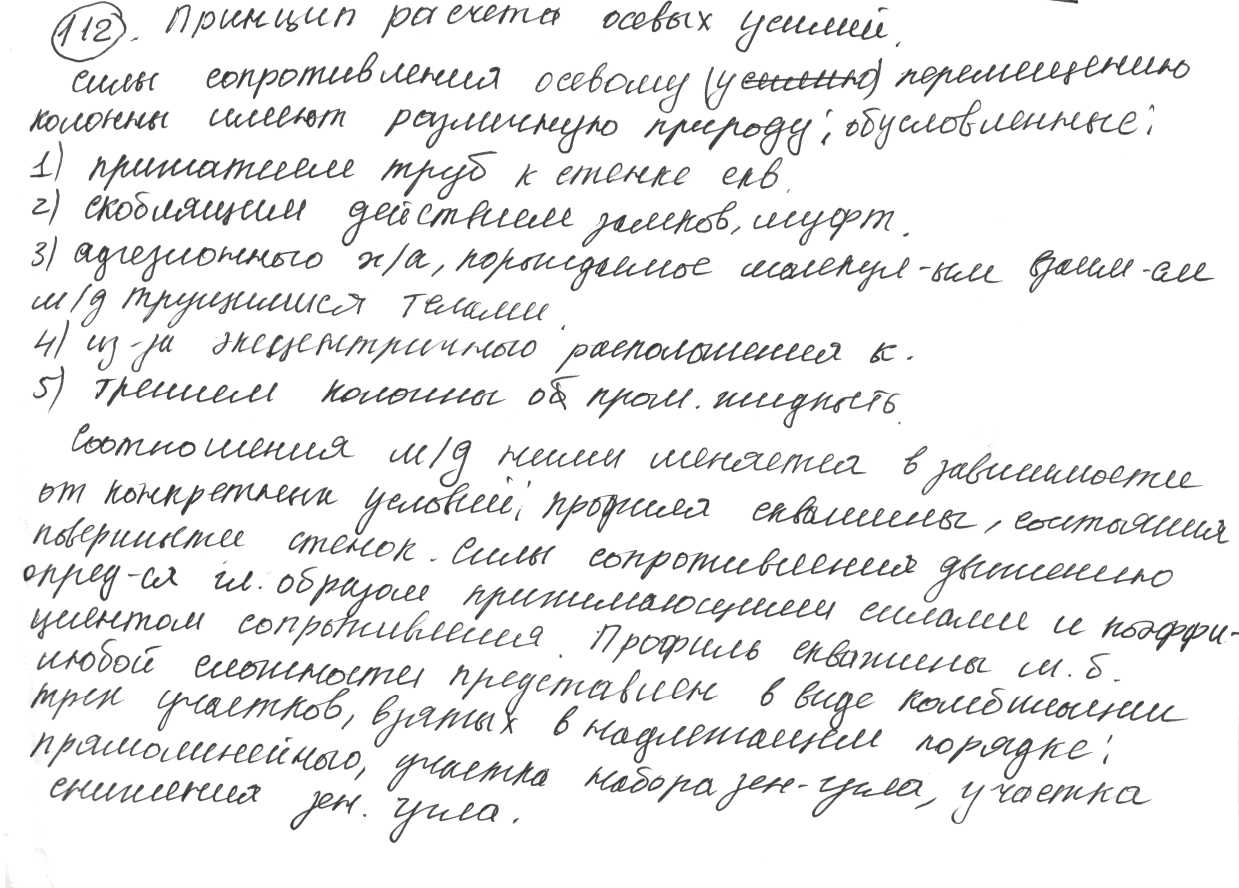 112. Принцип расчета осевых усилий.
Силы сопротивления осевому (усилию) перемещению
колонны имеют различную природу; обусловленные:
1) прижатием труб к стенке скв.
2) скоблящим действием замков, муфт.
3) адгезионного х/а, порождаемое молекул-ым взаим-ем
м/д трущимися телами.
4) из-за эксцентричного расположения к.
5) трением колонны об пром. жидкость.
Соотношения м/д ними меняется в зависимости
от конкретных условий; профиля скважины, состояния
поверхности стенок. Силы сопротивления движению
опред-ся гл. образом прижимающими силами и коэффи-
циентом сопротивления. Профиль скважины м.б.
любой сложности представлен в виде комбинации
трех участков, взятых в надлежащем порядке:
прямолинейного, участка набора зен-угла, участка
снижения зен. угла.